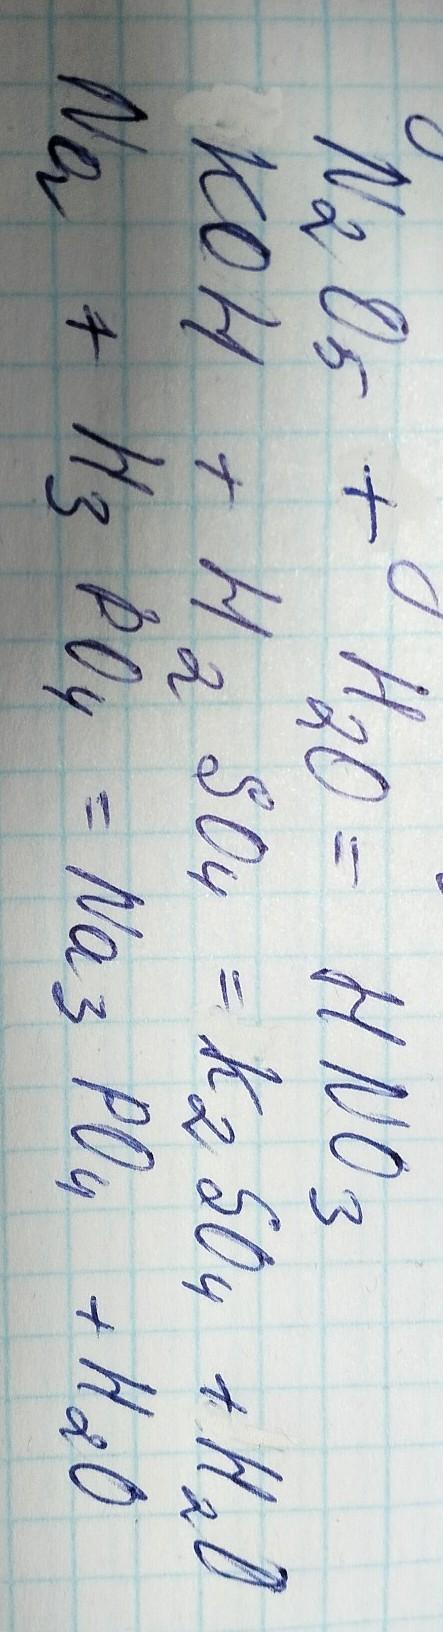 N₂O₅ + H₂O = HNO₃
KOH + H₂SO₄ = K₂SO₄ + H₂O
Na + H₃PO₄ = Na₃PO₄ + H₂O